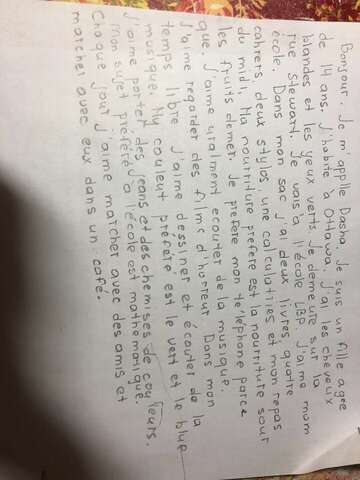 Bonjour. Je m'applle Dasha. Je suis un fille agee
de 14 ans. J'habite à Ottowa. J'ai les cheveux
blandes et les yeux verts. Je demeure sur la
rue Stewart. Je vais à l'école LBP. J'aime mum
école. Dans mon sac j'ai deux livres, quatre
cahiers, deux stylos, une calculatries et mon repas
du midi. Ma nourriture préfére est la nourriture sour
les fruits demer. Je préfére mon téléphone parce
que, j'aime vralment ecouter de la musique.
J'aime regarder des films d'horreur. Dans mon
temps libre j'aime dessiner et écouter de la
musique. My couleut préfété est le vert et le blue
J'aime portet des jeans et des chemises de couleurs.
Mon sujet préféré à l'école est mathematique.
Choque jour j'aime marcher avec des amis et
marcher avec eux dans un café.